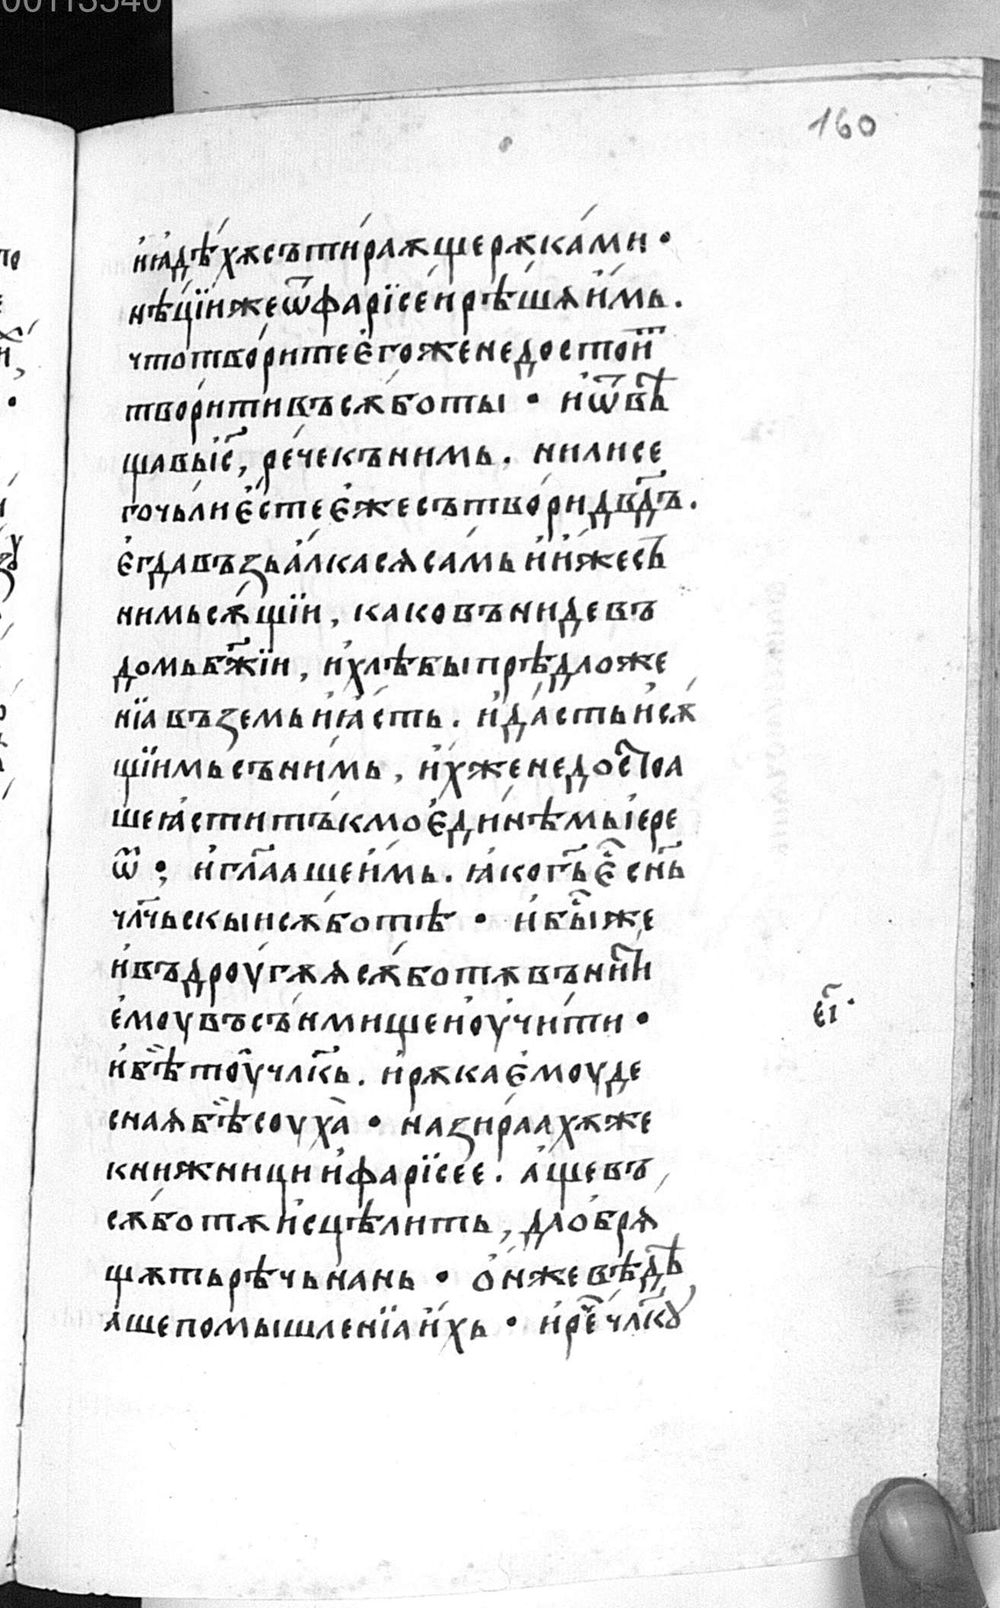 00113540
160
и҆ꙗ҆дѣ́хѫ сътира́ѫще рѫка́ми ·
нѣ́цїи же ѿ фарїсе́и рѣ́шѧ и҆́мь .
что твори́те є҆гоже не досто́иⷮ
твори́ти въ сѫбо́ты · и҆ ѿвѣ́
щавь і҆с҃, ре́че къ нимь . ни ли се
го чьли є҆́сте є҆́же сътвори́ дв҃дъ .
є҆гда възьа́лка сѧ са́мь и҆ и҆́же съ
нимь сѫ́щїи , како въниде въ
домь бж҃їи , и҆ хлѣ́бы прѣ́дложе
нїа въземь и҆ ꙗ҆́сть . и҆ да́сть и҆ сѫ́
щїимь съ ни́мь , и҆́хже не досⷮоа
ше ꙗ҆́сти тъ́кмо є҆ди́нѣмь і҆ере
ѡⷨ ⁏ и҆ гл҃ааше и҆́мь . ꙗ҆ко гь҃ є҆ⷭ сн҃ь
чл҃чьскы и сѫбо́тѣ · и҆ быⷭ же
и҆ въ дроу́гѫѧ сѫбо́тѫ въниⷮи
є҆моу въ съ́нмище и҆ оу҆чи́ти ·
и҆ бѣ̀ тоу̀ чл҃кь . и҆ рѫка є҆моу де
снаѧ бѣ̀ соуха̀ · назира́ахѫ же
книжници и҆ фарїсе́е . а҆́ще въ
сѫбо́тѫ и҆сцѣ́лить , да о҆брѧ́
щѫть рѣчь нань · о҆́нже вѣ́дѣ
а҆ше помышле́нїа и҆́хь · и҆ реⷱ чл҃кꙋ
є҃і ·